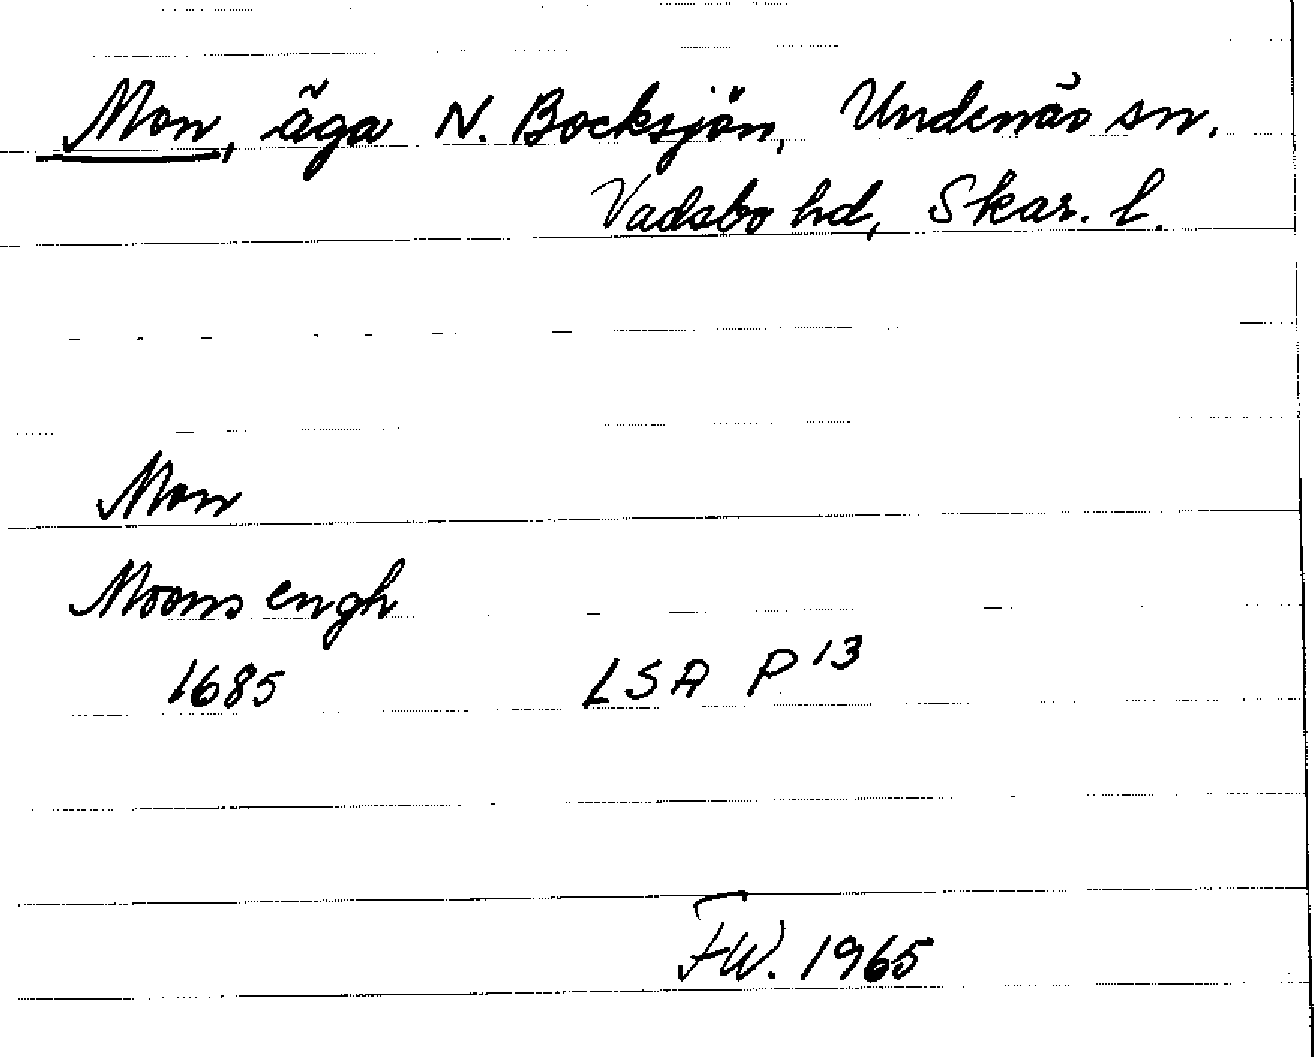 Mon, äga N. Bocksjön, Undenäs sn.
Vadsbo hd, Skar. l.
Mon
Moons engh
1685 LSA P 13
FW. 1965